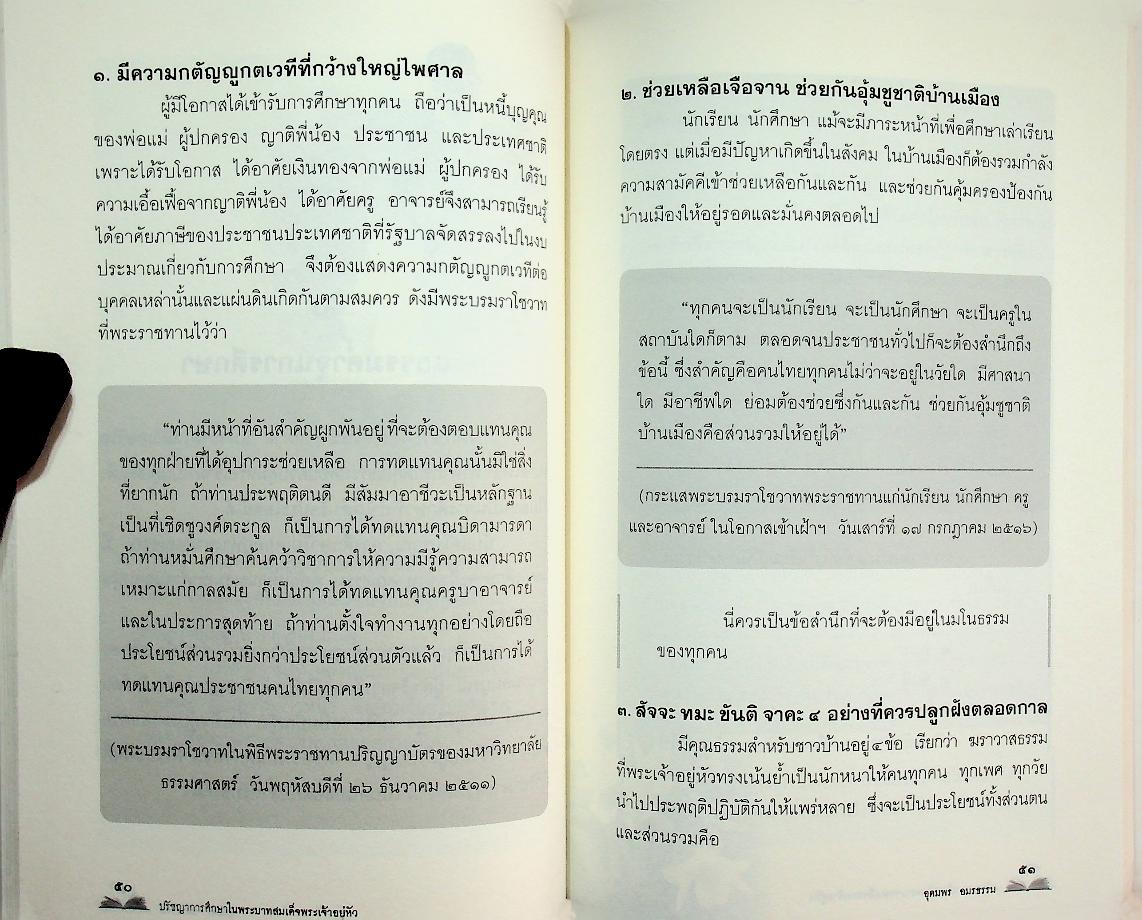 ๑. มีความกตัญญูกตเวทีที่กว้างใหญ่ไพศาล
ผู้มีโอกาสได้เข้ารับการศึกษาทุกคน ถือว่าเป็นหนี้บุญคุณ
ของพ่อแม่ ผู้ปกครอง ญาติพี่น้อง ประชาชน และประเทศชาติ
เพราะได้รับโอกาส ได้อาศัยเงินทองจากพ่อแม่ ผู้ปกครอง ได้รับ
ความเอื้อเฟื้อจากญาติพี่น้อง ได้อาศัยครู อาจารย์จึงสามารถเรียนรู้
ได้อาศัยภาษีของประชาชนประเทศชาติที่รัฐบาลจัดสรรลงไปในงบ
ประมาณเกี่ยวกับการศึกษา จึงต้องแสดงความกตัญญูกตเวทีต่อ
บุคคลเหล่านั้นและแผ่นดินเกิดกันตามสมควร ดังมีพระบรมราโชวาท
ที่พระราชทานไว้ว่า
“ท่านมีหน้าที่อันสำคัญผูกพันอยู่ ที่จะต้องตอบแทนคุณ
ของทุกฝ่ายที่ได้อุปการะช่วยเหลือ การทดแทนคุณนั้นมิใช่สิ่ง
ที่ยากนัก ถ้าท่านประพฤติตนดี มีสัมมาอาชีวะเป็นหลักฐาน
เป็นที่เชิดชูวงศ์ตระกูล ก็เป็นการได้ทดแทนคุณบิดามารดา
ถ้าท่านหมั่นศึกษาค้นคว้าวิชาการให้ความมีรู้ความสามารถ
เหมาะแก่กาลสมัย ก็เป็นการได้ทดแทนคุณครูบาอาจารย์
และในประการสุดท้าย ถ้าท่านตั้งใจทำงานทุกอย่างโดยถือ
ประโยชน์ส่วนรวมยิ่งกว่าประโยชน์ส่วนตัวแล้ว ก็เป็นการได้
ทดแทนคุณประชาชนคนไทยทุกคน”
(พระบรมราโชวาทในพิธีพระราชทานปริญญาบัตรของมหาวิทยาลัย
ธรรมศาสตร์ วันพฤหัสบดีที่ ๒๖ ธันวาคม ๒๕๑๑)
๕๐
ปรัชญาการศึกษาในพระบาทสมเด็จพระเจ้าอยู่หัว
๒. ช่วยเหลือเจือจาน ช่วยกันอุ้มชูชาติบ้านเมือง
นักเรียน นักศึกษา แม้จะมีภาระหน้าที่เพื่อศึกษาเล่าเรียน
โดยตรง แต่เมื่อมีปัญหาเกิดขึ้นในสังคม ในบ้านเมืองก็ต้องรวมกำลัง
ความสามัคคีเข้าช่วยเหลือกันและกัน และช่วยกันคุ้มครองป้องกัน
บ้านเมืองให้อยู่รอดและมั่นคงตลอดไป
“ทุกคนจะเป็นนักเรียน จะเป็นนักศึกษา จะเป็นครูใน
สถาบันใดก็ตาม ตลอดจนประชาชนทั่วไปก็จะต้องสำนึกถึง
ข้อนี้ ซึ่งสำคัญคือคนไทยทุกคนไม่ว่าจะอยู่ในวัยใด มีศาสนา
ใด มีอาชีพใด ย่อมต้องช่วยซึ่งกันและกัน ช่วยกันอุ้มชูชาติ
บ้านเมืองคือส่วนรวมให้อยู่ได้”
(กระแสพระบรมราโชวาทพระราชทานแก่นักเรียน นักศึกษา ครู
และอาจารย์ ในโอกาสเข้าเฝ้าฯ วันเสาร์ที่ ๑๗ กรกฎาคม ๒๕๑๖)
นี่ควรเป็นข้อสำนึกที่จะต้องมีอยู่ในมโนธรรม
ของทุกคน
๓. สัจจะ ทมะ ขันติ จาคะ ๔ อย่างที่ควรปลูกฝังตลอดกาล
มีคุณธรรมสำหรับชาวบ้านอยู่๔ข้อ เรียกว่า ฆราวาสธรรม
ที่พระเจ้าอยู่หัวทรงเน้นย้ำเป็นนักหนาให้คนทุกคน ทุกเพศ ทุกวัย
นำไปประพฤติปฏิบัติกันให้แพร่หลาย ซึ่งจะเป็นประโยชน์ทั้งส่วนตน
และส่วนรวมคือ
๕๑
อุดมพร อมรธรรม